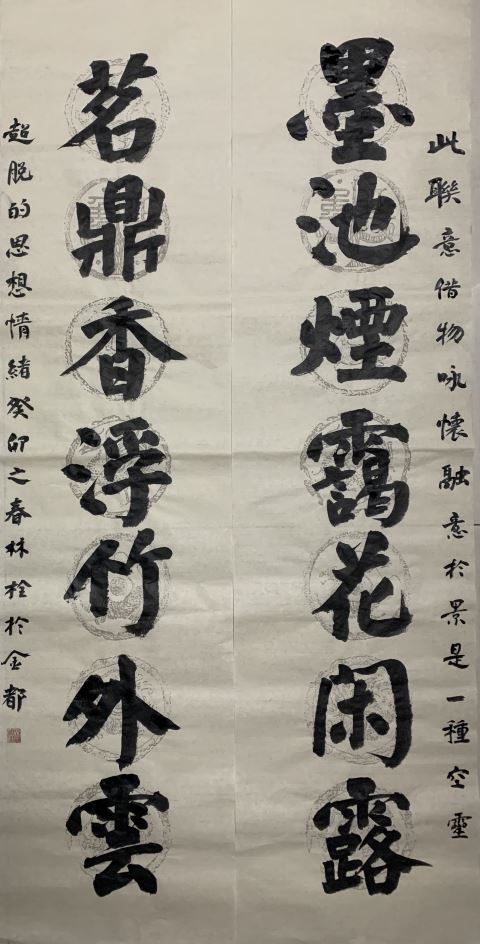 此聯意借物咏懷融意於景是一種空靈
墨池煙靄花闲露
茗鼎香浮竹外雲
超脱的思想情緒癸卯之春林栓於金都